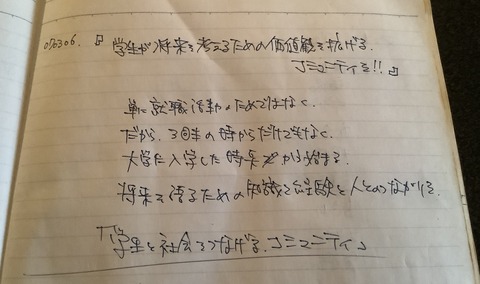 070306. 『学生が将来を考えるための価値観を拡げる
コミュニティを!!』
単に就職活動のためではなく、
だから、3回生の時からだけでもなく、
大学に入学した時点から始まる。
将来を語るための知識と経験と人とのつながりを。
「学生と社会をつなげる、コミュニティ」